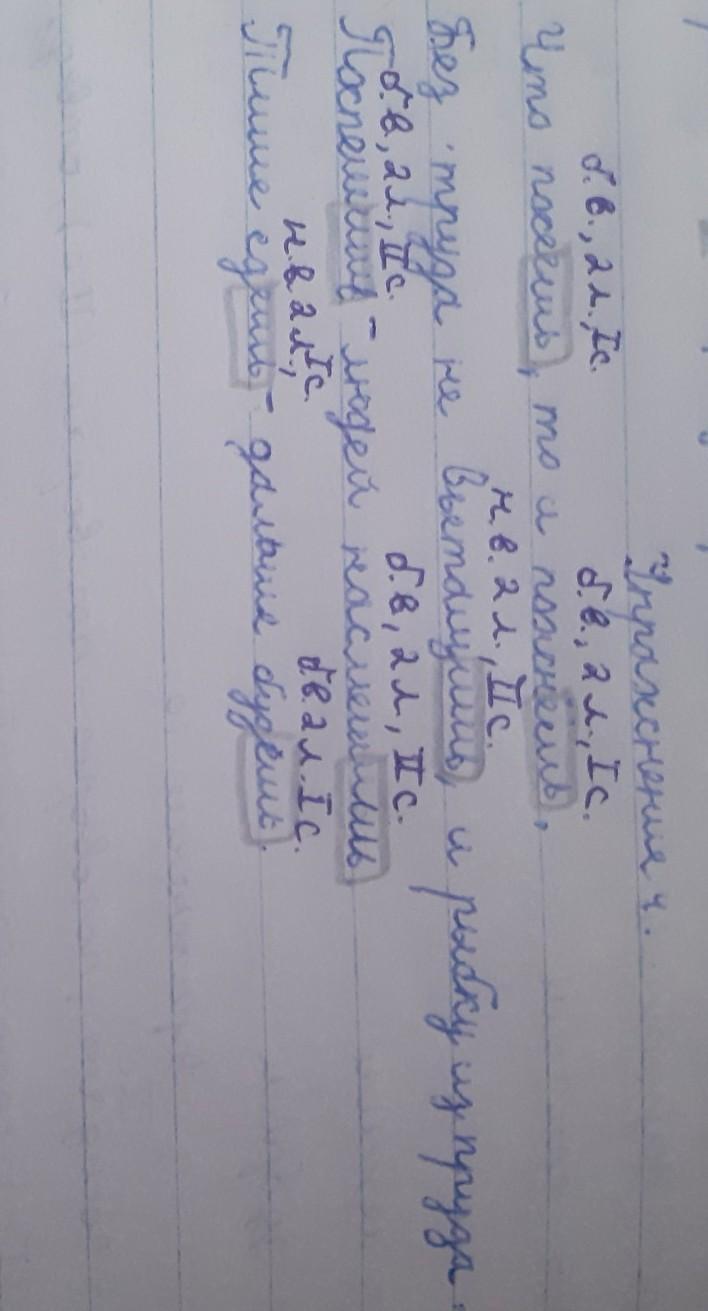 Упражнение 4.
б.в., 2 л., I с. б.в., 2 л., I с.
Что посеешь, то и пожнёшь,
н.в. 2 л., II с.
Без труда не вытащишь, и рыбку из пруда.
б.в., 2 л., II с. б.в, 2 л, II с.
Поспешишь - людей насмешишь
н.в 2 л., I с. б.в. 2 л. I с.
Тише едешь - дальше будешь.